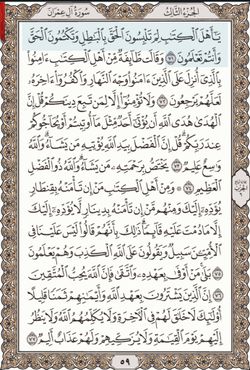 سُورَةُ آلِ عِمْرَانَ
الجُزْءُ الثَّالِثُ
يَٰٓأَهْلَ ٱلْكِتَٰبِ لِمَ تَلْبِسُونَ ٱلْحَقَّ بِٱلْبَٰطِلِ وَتَكْتُمُونَ ٱلْحَقَّ
وَأَنتُمْ تَعْلَمُونَ ٧١ وَقَالَت طَّآئِفَةٌ مِّنْ أَهْلِ ٱلْكِتَٰبِ ءَامِنُوا۟
بِٱلَّذِىٓ أُنزِلَ عَلَى ٱلَّذِينَ ءَامَنُوا۟ وَجْهَ ٱلنَّهَارِ وَٱكْفُرُوٓا۟ ءَاخِرَهُۥ
لَعَلَّهُمْ يَرْجِعُونَ ٧٢ وَلَا تُؤْمِنُوٓا۟ إِلَّا لِمَن تَبِعَ دِينَكُمْ قُلْ إِنَّ
ٱلْهُدَىٰ هُدَى ٱللَّهِ أَن يُؤْتَىٰٓ أَحَدٌ مِّثْلَ مَآ أُوتِيتُمْ أَوْ يُحَآجُّوكُمْ
عِندَ رَبِّكُمْ قُلْ إِنَّ ٱلْفَضْلَ بِيَدِ ٱللَّهِ يُؤْتِيهِ مَن يَشَآءُ وَٱللَّهُ
وَٰسِعٌ عَلِيمٌ ٧٣ يَخْتَصُّ بِرَحْمَتِهِۦ مَن يَشَآءُ وَٱللَّهُ ذُو ٱلْفَضْلِ
ٱلْعَظِيمِ ٧٤ وَمِنْ أَهْلِ ٱلْكِتَٰبِ مَنْ إِن تَأْمَنْهُ بِقِنطَارٍ
يُؤَدِّهِۦٓ إِلَيْكَ وَمِنْهُم مَّنْ إِن تَأْمَنْهُ بِدِينَارٍ لَّا يُؤَدِّهِۦٓ إِلَيْكَ
إِلَّا مَا دُمْتَ عَلَيْهِ قَآئِمًا ذَٰلِكَ بِأَنَّهُمْ قَالُوا۟ لَيْسَ عَلَيْنَا فِى
ٱلْأُمِّيِّـۧنَ سَبِيلٌ وَيَقُولُونَ عَلَى ٱللَّهِ ٱلْكَذِبَ وَهُمْ يَعْلَمُونَ
٧٥ بَلَىٰ مَنْ أَوْفَىٰ بِعَهْدِهِۦ وَٱتَّقَىٰ فَإِنَّ ٱللَّهَ يُحِبُّ ٱلْمُتَّقِينَ
٧٦ إِنَّ ٱلَّذِينَ يَشْتَرُونَ بِعَهْدِ ٱللَّهِ وَأَيْمَٰنِهِمْ ثَمَنًا قَلِيلًا
أُو۟لَٰٓئِكَ لَا خَلَٰقَ لَهُمْ فِى ٱلْءَاخِرَةِ وَلَا يُكَلِّمُهُمُ ٱللَّهُ وَلَا يَنظُرُ
إِلَيْهِمْ يَوْمَ ٱلْقِيَٰمَةِ وَلَا يُزَكِّيهِمْ وَلَهُمْ عَذَابٌ أَلِيمٌ ٧٧
٥٩